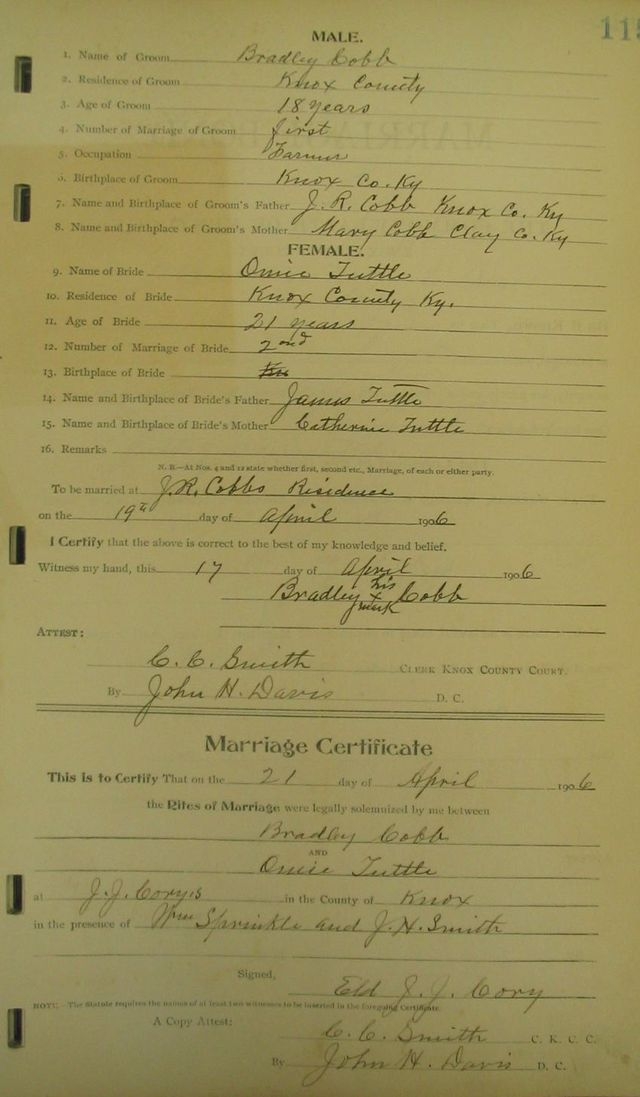 115
MALE.
1. Name of Groom Bradley Cobb
2. Residence of Groom Knox County
3. Age of Groom 18 years
4. Number of Marriage of Groom first
5. Occupation Farmer
6. Birthplace of Groom Knox Co. Ky
7. Name and Birthplace of Groom's Father J. R. Cobb Knox Co. Ky
8. Name and Birthplace of Groom's Mother Mary Cobb Clay Co. Ky
FEMALE.
9. Name of Bride Omie Tuttle
10. Residence of Bride Knox County Ky.
11. Age of Bride 21 years
12. Number of Marriage of Bride 2ond
13. Birthplace of Bride
14. Name and Birthplace of Bride's Father James Tuttle
15. Name and Birthplace of Bride's Mother Catherine Tuttle
16. Remarks
N. B.—At Nos. 4 and 12 state whether first, second etc., Marriage, of each or either party.
To be married at J.R. Cobbs Residence
on the 19th day of April 1906
I Certify that the above is correct to the best of my knowledge and belief.
Witness my hand, this 17 day of April 1906
Bradley his x mark Cobb
ATTEST:
C. C. Smith CLERK KNOX COUNTY COURT.
By John H. Davis D. C.
Marriage Certificate
This is to Certify That on the 21 day of April 1906
the Rites of Marriage were legally solemnized by me between
Bradley Cobb
AND
Omie Tuttle
at J. J. Cory,s in the County of Knox
in the presence of Wm Sprinkle and J. H. Smith
Signed,
Eld J. J. Cory
NOTE.—The Statute requires the names of at least two witnesses to be inserted in the foregoing Certificate.
A Copy Attest:
C. C. Smith C. K. C. C.
By John H. Davis D. C.